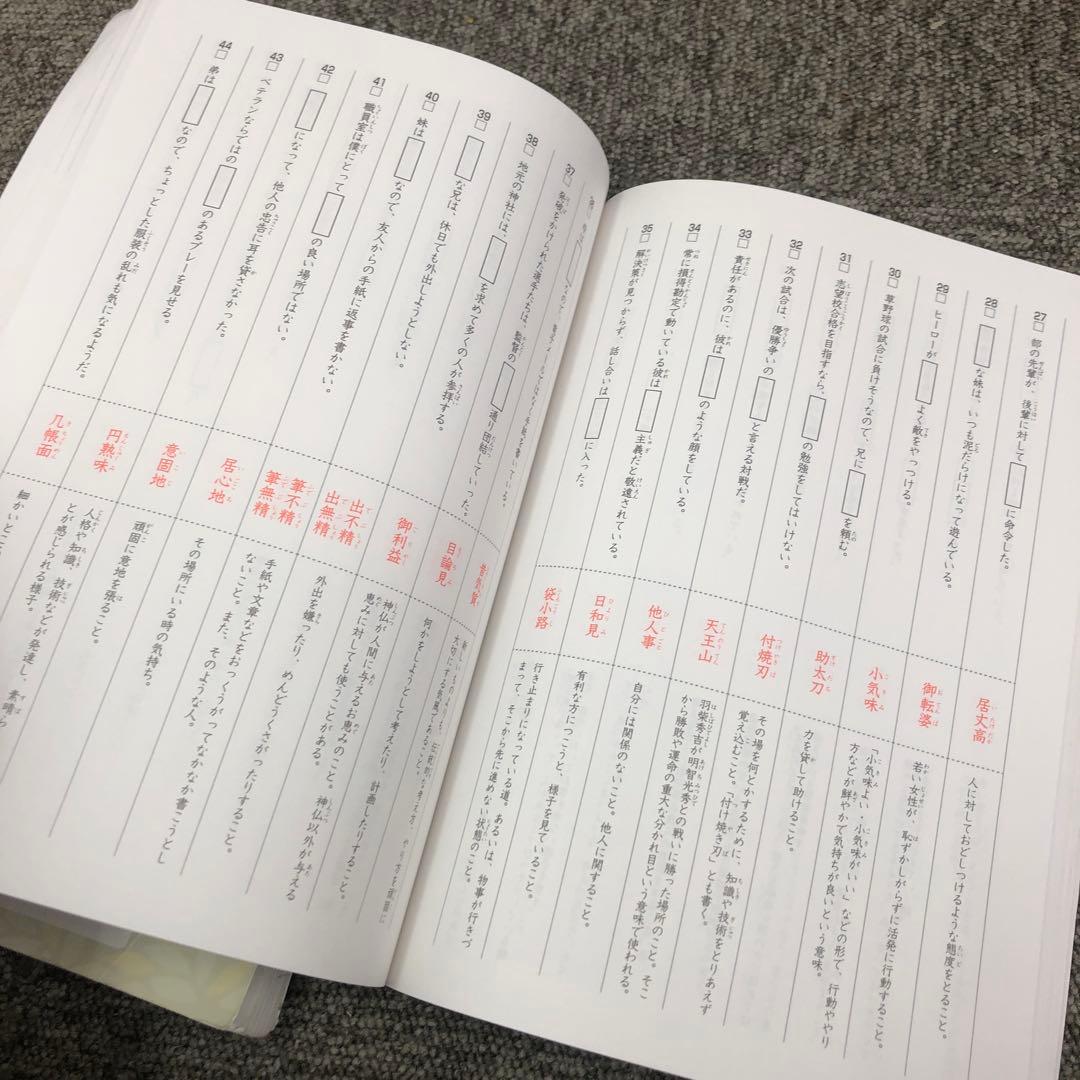 27 部の先輩が、後輩に対して に命令した。
居丈高
人に対しておどしつけるような態度をとること。
28 な妹は、いつも泥だらけになって遊んでいる。
御転婆
若い女性が、恥ずかしがらずに活発に行動すること。
29 ヒーローが よく敵をやっつける。
小気味
「小気味よい・小気味がいい」などの形で、行動ややり
方などが鮮やかで気持ちが良いという意味。
30 草野球の試合に負けそうなので、兄に を頼む。
助太刀
力を貸して助けること。
31 志望校合格を目指すなら、 の勉強をしてはいけない。
付焼刃
その場を何とかするために、知識や技術をとりあえず
覚え込むこと。「付け焼き刃」とも書く。
32 次の試合は、優勝争いの と言える対戦だ。
天王山
羽柴秀吉が明智光秀との戦いに勝った場所のこと。そこ
から勝敗や運命の重大な分かれ目という意味で使われる。
33 責任があるのに、彼は のような顔をしている。
他人事
自分には関係のないこと。他人に関すること。
34 常に損得勘定で動いている彼は 主義だと敬遠されている。
日和見
有利な方につこうと、様子を見ていること。
35 解決策が見つからず、話し合いは に入った。
袋小路
行き止まりになっている道。あるいは、物事が行きづ
まって、そこから先に進めない状態のこと。
手紙を書いている。
昔気質
新しいものよりも、伝統的な考え方、やり方を頑固に
大切にする気風であること。
37 発破をかけられた選手たちは、監督の 通り団結していった。
目論見
何かをしようとして考えたり、計画したりすること。
38 地元の神社には、 を求めて多くの人が参拝する。
御利益
神仏が人間に与えるお恵みのこと。神仏以外が与える
恵みに対しても使うことがある。
39 な兄は、休日でも外出しようとしない。
出不精
出無精
外出を嫌ったり、めんどうくさがったりすること。
40 妹は なので、友人からの手紙に返事を書かない。
筆不精
筆無精
手紙や文章などをおっくうがってなかなか書こうとし
ないこと。また、そのような人。
41 職員室は僕にとって の良い場所ではない。
居心地
その場所にいる時の気持ち。
42 になって、他人の忠告に耳を貸さなかった。
意固地
頑固に意地を張ること。
43 ベテランならではの のあるプレーを見せる。
円熟味
人格や知識、技術などが発達し、素晴ら
とが感じられる様子。
44 弟は なので、ちょっとした服装の乱れも気になるようだ。
几帳面
細かいところ